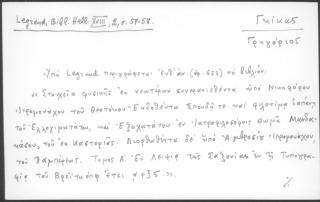 Legrand, Bibl. Hell. XVIII, 2, σ. 57-58.
Γκίκας
Γρηγόριος
Ὑπὸ Legrand περιγράφεται ἐνθ' ἀν. (ἀρ. 652) τὸ βιβλίον:
« Στοιχεῖα φυσικῆς ἐκ νεωτέρων συνερανισθέντα ὑπὸ Νικηφόρου
Ἱερομονάχου τοῦ Θεοτόκου· Ἐκδοθέντα Σπουδῇ τε καὶ φιλοτίμῳ δαπάνῃ
τοῦ Ἐλλογιμωτάτου, καὶ Ἐξοχωτάτου ἐν Ἰατροφιλοσόφοις Θωμᾶ Μανδα-
κάσου, τοῦ ἐκ Καστορίας. Διορθωθέντα δὲ ὑπὸ Ἀμβροσίου Ἱερομονάχου,
τοῦ Παμπέρεως. Τόμος Α΄ Ἐν Λειψίᾳ τῆς Σαξονίας ἐν τῇ Τυπογρα-
φίᾳ τοῦ Βρέϊτκοπφ ἔτει